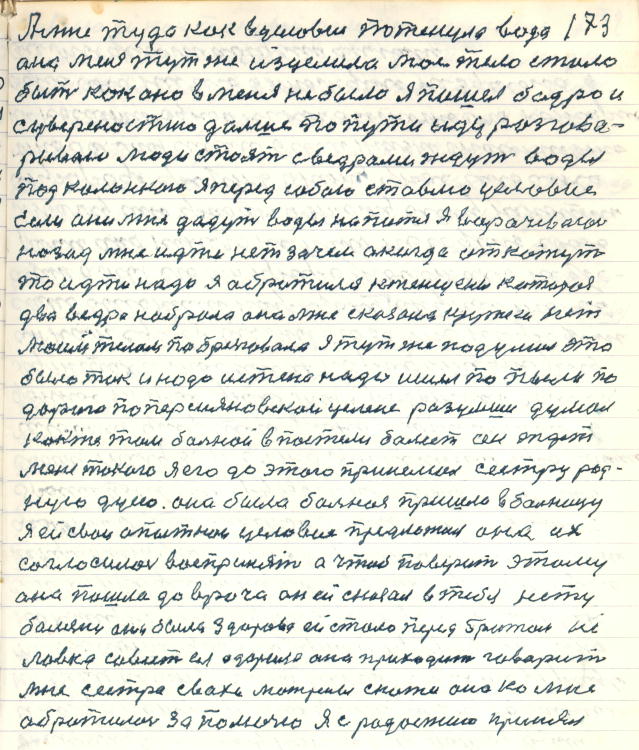 Анне туда как в целовии потенула вода 173
ана меня тут же изцелила мое тело стало
быт как ано в меня не было Я пошел бадро и
суверeностию далше по пути иду разгова-
риваю люди стоят сведрами ждут воды
под калонкаю Я перед собаю ставлю целовие
если они мне дадут воды напится Я ворачеваюс
назад мне идти нет зачем а когда откажут
то идти надо Я абратился к женщени каторая
два ведра набрала она мне сказала кружки нет
маим телом пабрезговала Я тут же подумал это
было так и надо истена нады ишел по пыли по
дороги по персияновской целене думал
как там балной впостели балеет он ждет
мене такого Я его до этого принемал сестру род-
ную дусю. она была балная пришла в балницу
Я ей сваи опытнои целовия предложил она их
согласилас воспринят а чтоб поверит этому
она пошла до врача он ей сказал в тебя нету
балезни она была здорова ей стало перед братом не
ловка она приходит гаварит
мне сестра сваха она ко мне
абратилас за помочю Я с радостию принял